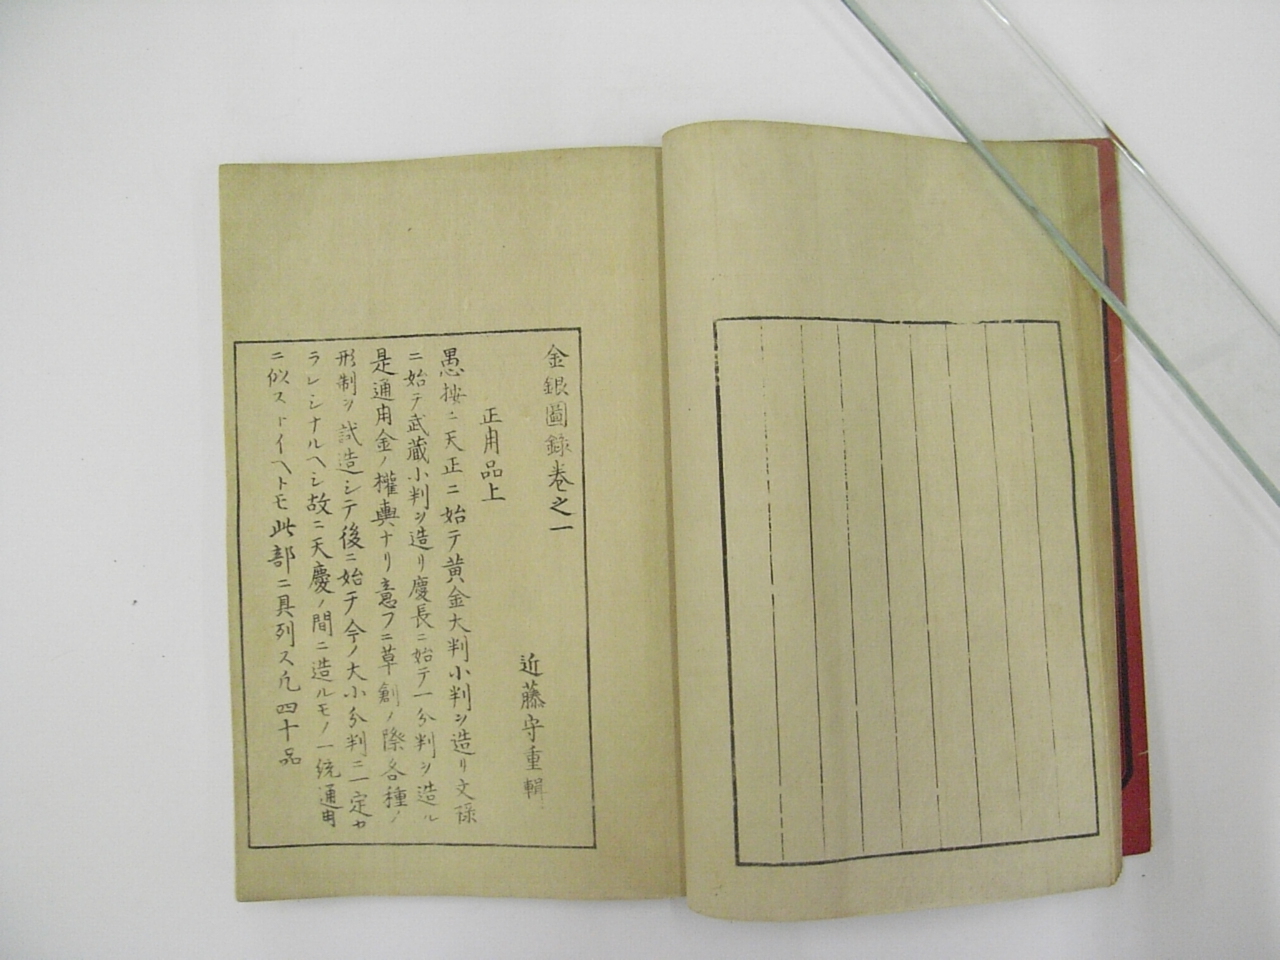 金銀圖錄巻之一
近藤守重輯
正用品上
愚按ニ天正ニ始テ黄金大判小判ヲ造リ文祿
ニ始テ武蔵小判ヲ造リ慶長ニ始テ一分判ヲ造ル
是通用金ノ權輿ナリ意フニ草創ノ際各種ノ
形制ヲ試造シテ後ニ始テ今ノ大小分判ニ一定セ
ラレシナルヘシ故ニ天慶ノ間ニ造ルモノ一統通用
ニ似ストイヘトモ此部ニ具列ス凡四十品